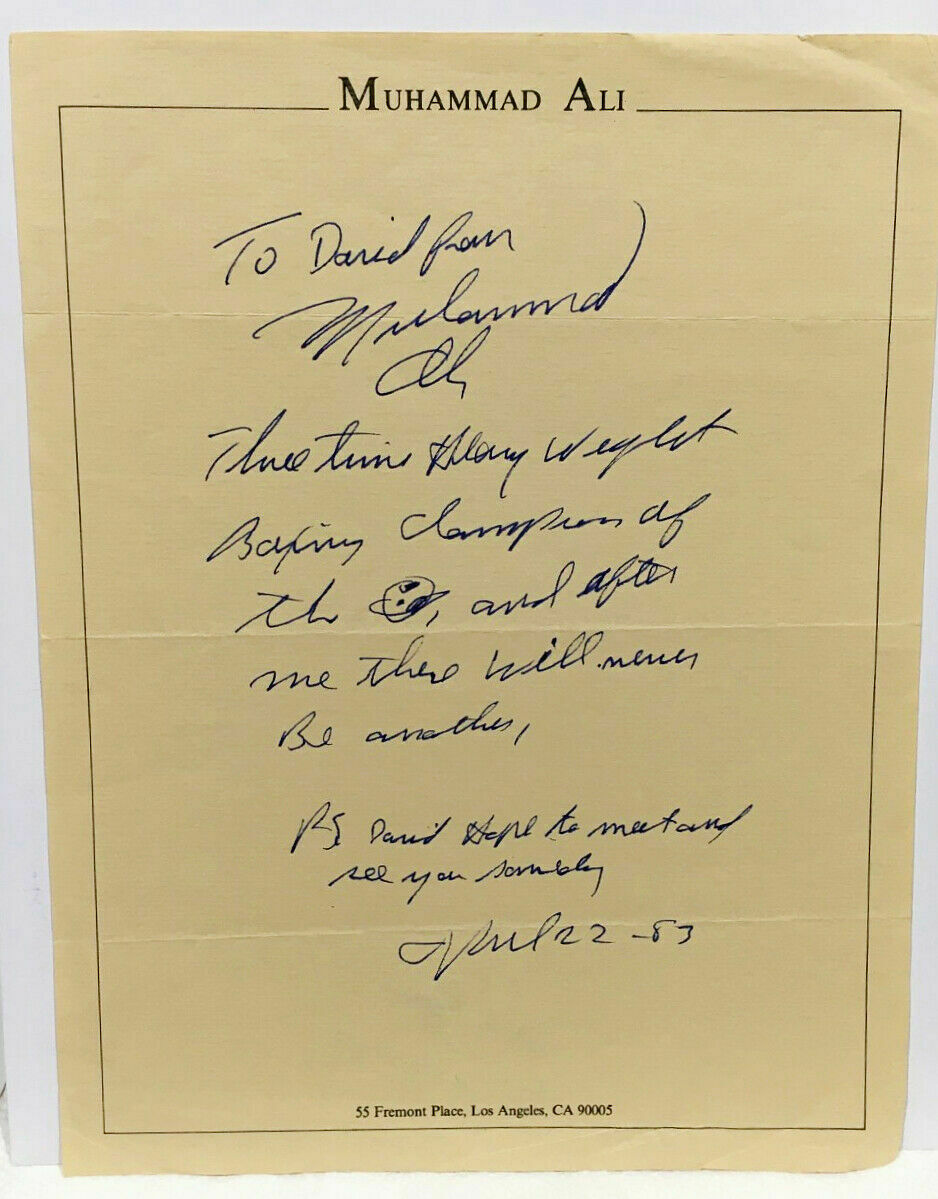 MUHAMMAD ALI
To David
Muhammad
Ali
Three time Heavy Weight
Boxing Champion of
the , and after
me there will never
Be another,
PS David Hope to meet and
see you someday
April 22-83
55 Fremont Place, Los Angeles, CA 90005